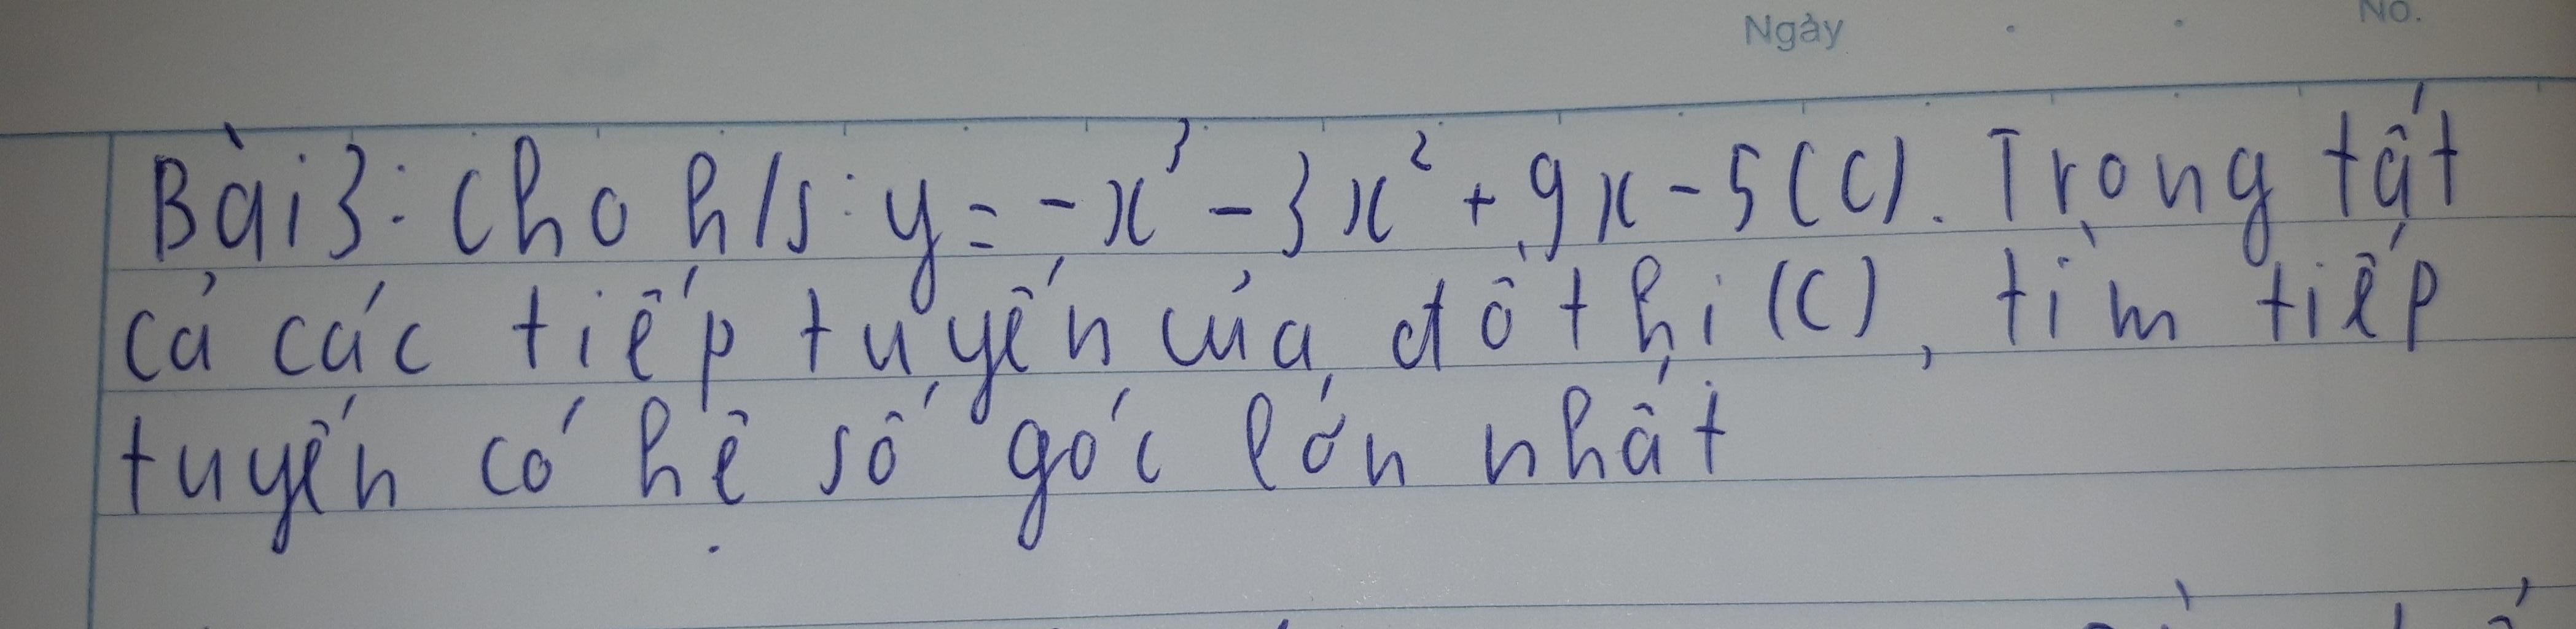 Ngày No.
Bài 3: Cho h/s: y = -x³ - 3x² + 9x - 5 (C). Trong tất
cả các tiếp tuyến của đồ thị (C), tìm tiếp
tuyến có hệ số góc lớn nhất